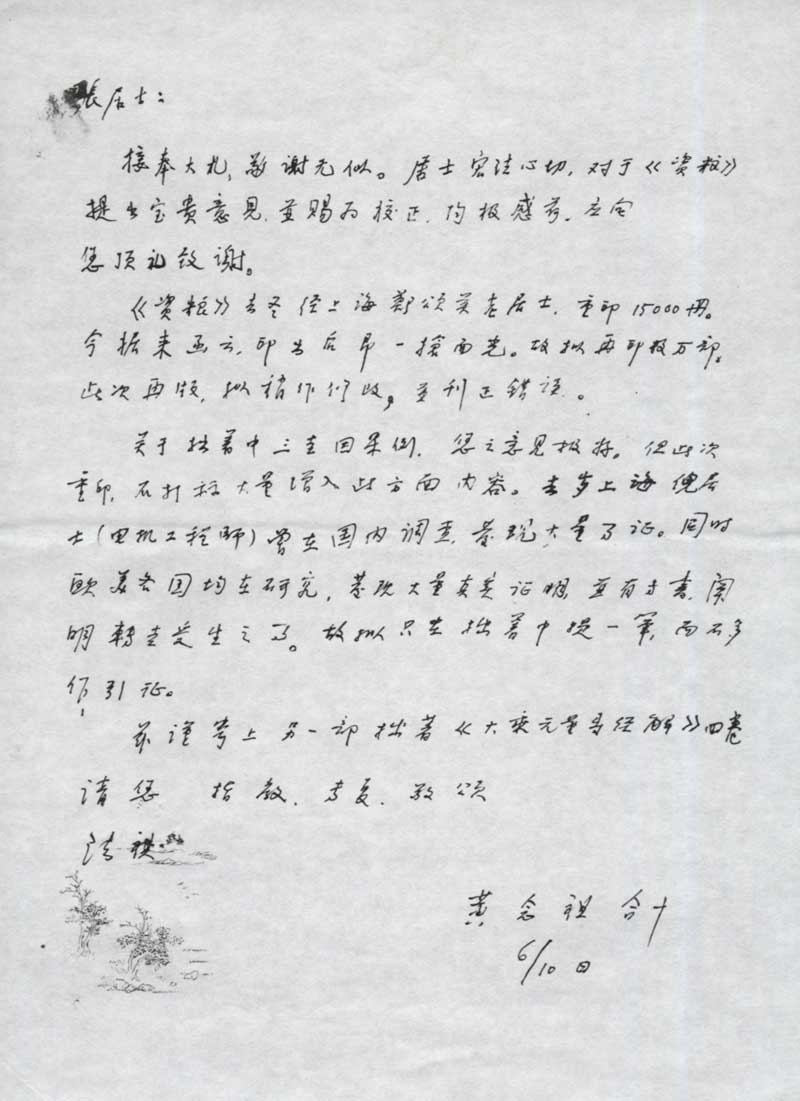 張居士：
接奉大札，敬谢无似。居士宏法心切，对于《资粮》
提出宝贵意见，並赐为校正，均极感荷。应向
您顶礼致谢。
《资粮》去冬经上海鄭頌英老居士，重印15000册。
今据来函云，印出后即一搶而光。故拟再印数万部。
此次再版，拟稍作修改，並刊正错误。
关于拙著中三世因果例，您之意见极好。但此次
重印，不打祘大量增入此方面内容。去岁上海倪居
士（电机工程師）曾在国内调查，发现大量了证。同时
欧美各国均在研究，发现大量真实证明，並有专書，阐
明轉世受生之了。故拟只在拙著中提一筆，而不多
作引证。
兹谨寄上另一部拙著《大乘无量寿经解》四卷
请您 指教。专复，敬颂
法祺
黄念祖 合十
6/10日